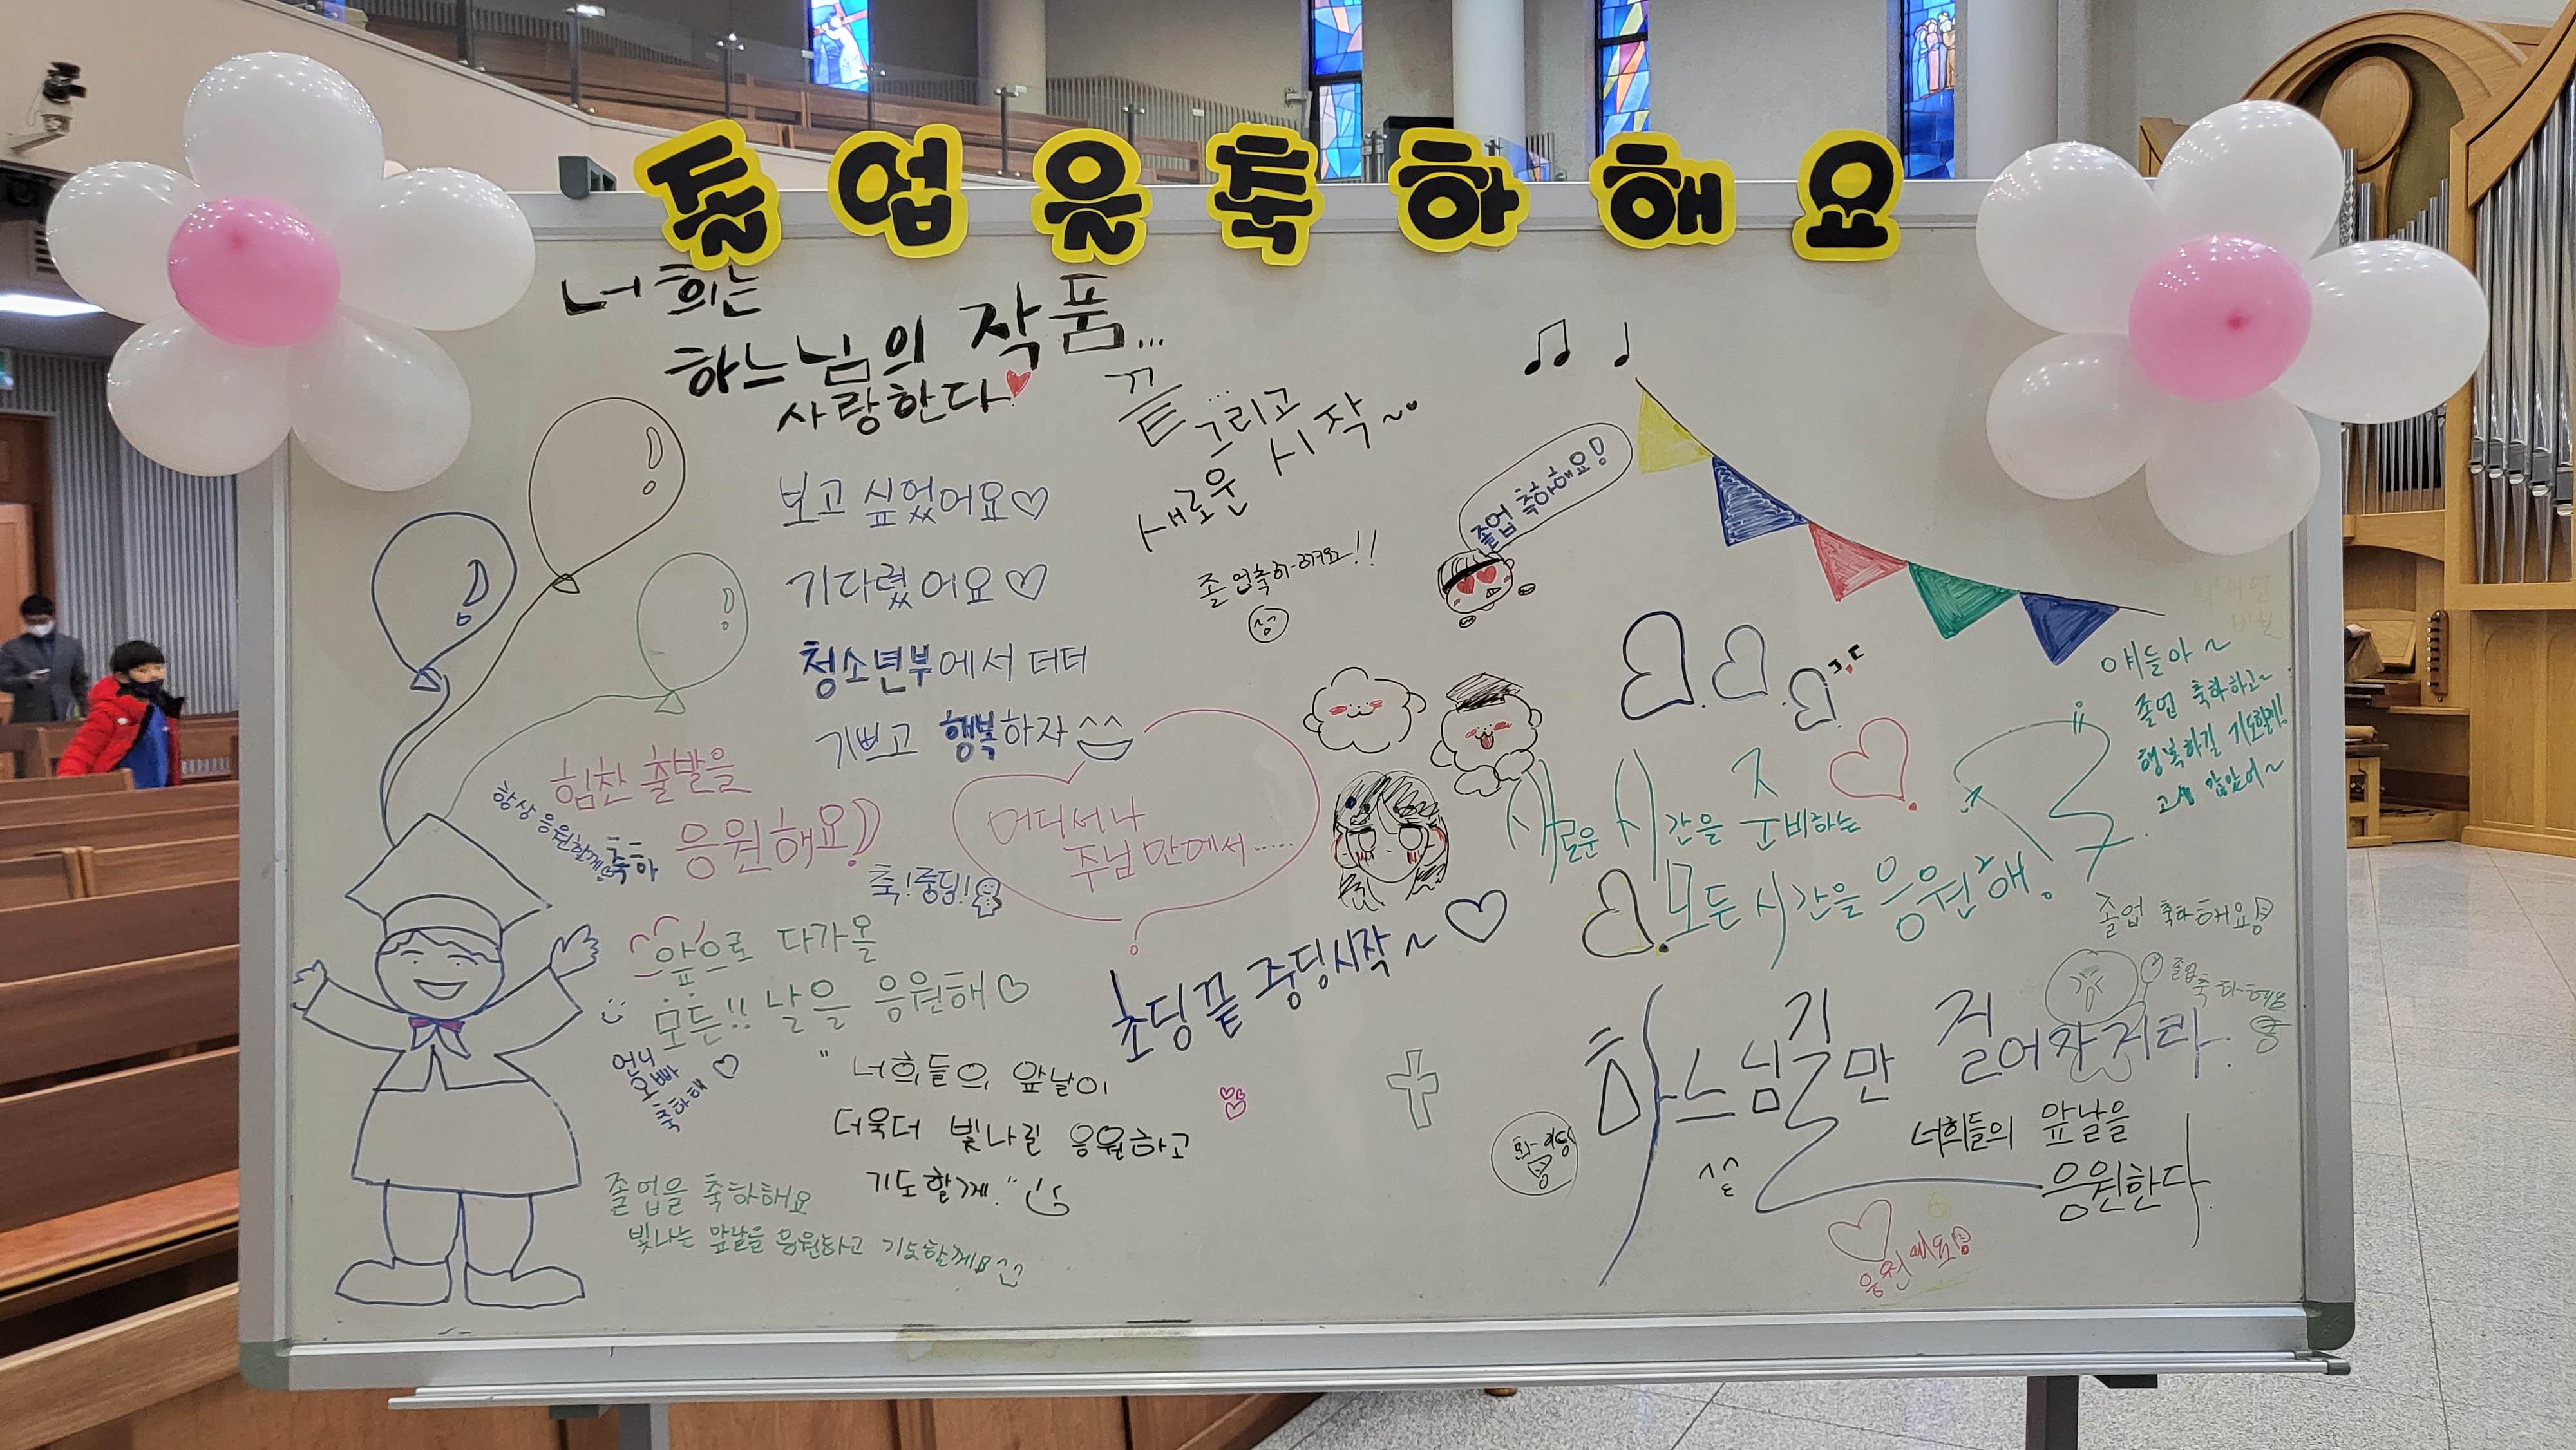 졸업을축하해요
너희는
하느님의 작품...
사랑한다
끝...
그리고
새로운 시작~
보고 싶었어요♡
기다렸어요♡
청소년부에서 더더
기쁘고 행복하자^^
졸업축하해요!!
성
졸업 축하해요!
J.C
얘들아~
졸업 축하하고~
행복하길 기도할게!
고생 많았어~
힘찬 출발을
응원해요!
항상 응원할게
축하
축!중딩!
어디서나
주님 안에서......
새로운 시간을 준비하는
모든 시간을 응원해.
졸업 축하해요
졸업
축하해요
앞으로 다가올
모든!! 날을 응원해♡
초딩끝 중딩시작~♡
언니
오빠
축하해♡
"너희들의 앞날이
더욱더 빛나길 응원하고
기도할게."
하느님 길만 걸어가거라.
너희들의 앞날을
응원한다
화이팅
졸업을 축하해요
빛나는 앞날을 응원하고 기도할게
응원해요